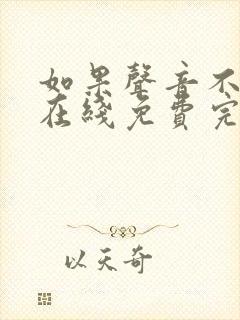 如果聲音不
在綫免費完
以天奇